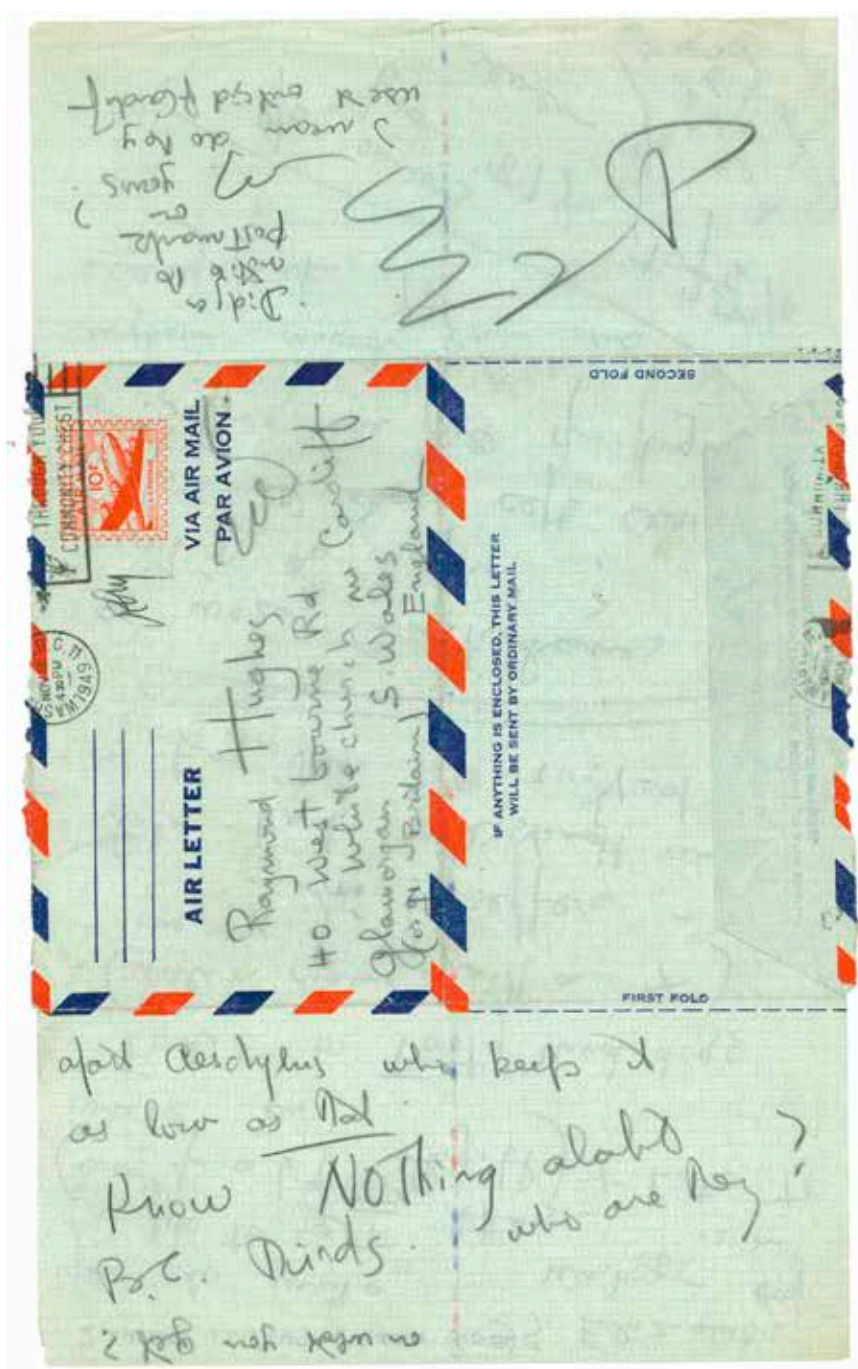 Didja
notis to
postmark
on
yours?
I mean do they
use it outsd Cardif
SECOND FOLD
THANK YOU
COMMUNITY CHEST
10¢
VIA AIR MAIL
PAR AVION
NOV
4 30 PM
1949
MASS.
AIR LETTER
Raymond Hughes
40 Westbourne Rd
Whitechurch nr Cardiff
Glamorgan S. Wales
(or gt Britain) England
IF ANYTHING IS ENCLOSED, THIS LETTER
WILL BE SENT BY ORDINARY MAIL
FIRST FOLD
apart Aeschylus who keeps it
as low as that
Know NOThing about
B.C. Minds. who are they?
you get?